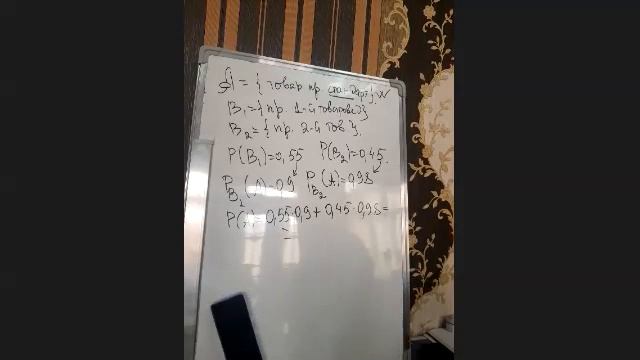 A = { товар пр. стандарт}. 
B₁={пр. 1-й товаровед}
B₂={пр. 2-й тов}.
P(B₁)=0,55 P(B₂)=0,45
P_B₁(A)=0,9 P_B₂(A)=0,98
P(A)=0,55·0,9+0,45·0,98=